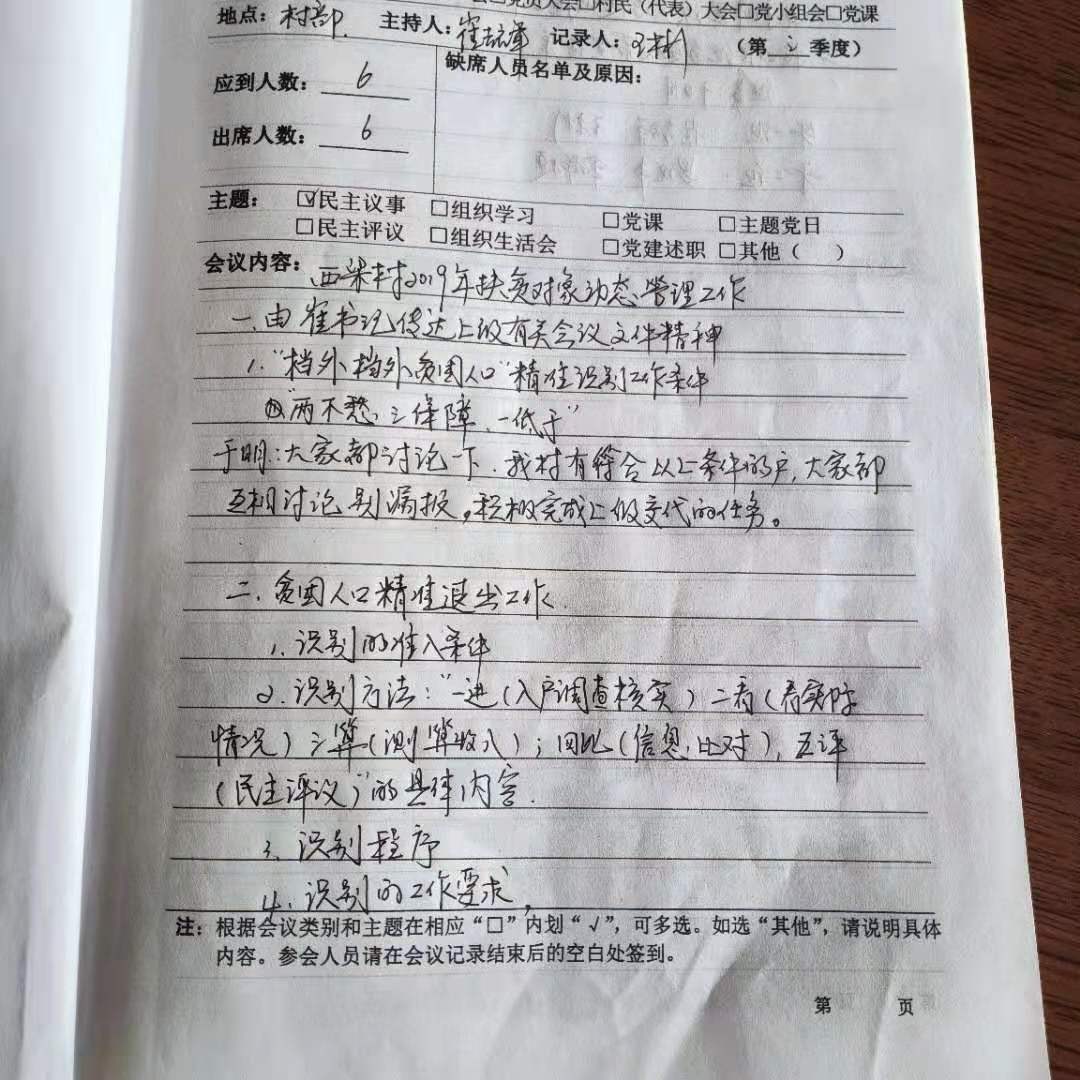 党员大会□村民（代表）大会□党小组会□党课
地点：村部 主持人：崔 记录人：王 （第三季度）
应到人数：6 缺席人员名单及原因：
出席人数：6
主题：☑民主议事 □组织学习 □党课 □主题党日
□民主评议 □组织生活会 □党建述职 □其他（ ）
会议内容：西梁村2019年扶贫对象动态管理工作
一、由崔书记传达上级有关会议文件精神
1. "档外档外贫困人口"精准识别工作条件
"两不愁、三保障、一低于"
于明：大家都讨论一下，我村有符合以上条件的户，大家都
互相讨论别漏报，积极完成上级交代的任务。
二、贫困人口精准退出工作
1. 识别的准入条件
2. 识别方法："一进（入户调查核实）二看（看实际
情况）三算（测算收入）；四比（信息比对），五评
（民主评议）"的具体内容
3. 识别程序
4. 识别的工作要求
注：根据会议类别和主题在相应"□"内划"√"，可多选。如选"其他"，请说明具体
内容。参会人员请在会议记录结束后的空白处签到。
第 页